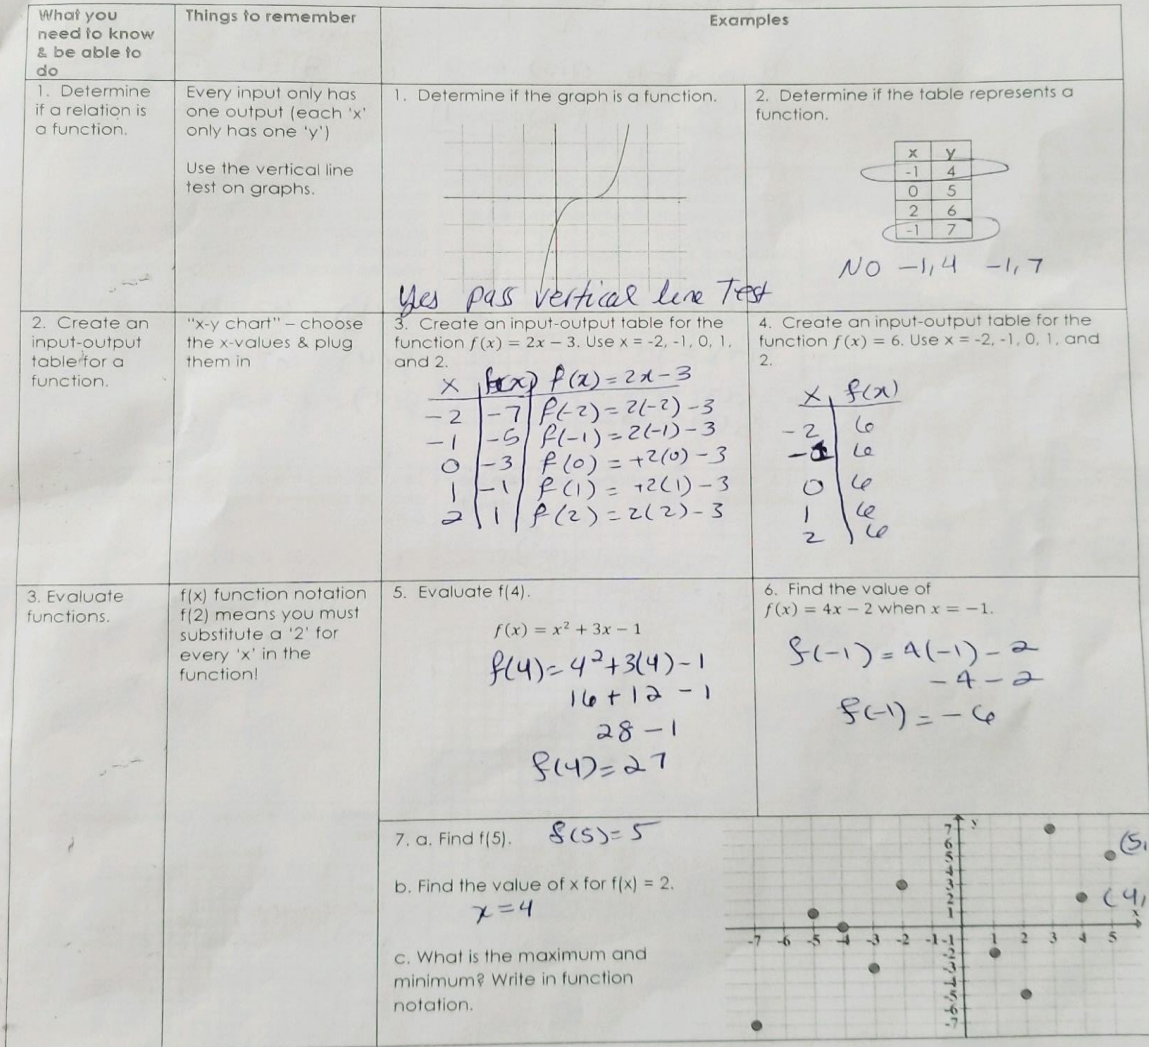 What you
need to know
& be able to
do
Things to remember
Examples
1. Determine
if a relation is
a function.
Every input only has
one output (each 'x'
only has one 'y')
Use the vertical line
test on graphs.
1. Determine if the graph is a function.
Yes pass vertical line Test
2. Determine if the table represents a
function.
x y
-1 4
0 5
2 6
-1 7
NO -1,4 -1,7
2. Create an
input-output
table for a
function.
"x-y chart" – choose
the x-values & plug
them in
3. Create an input-output table for the
function f(x) = 2x − 3. Use x = -2, -1, 0, 1,
and 2.
x f(x) f(x)=2x-3
-2 -7 f(-2)=2(-2)-3
-1 -5 f(-1)=2(-1)-3
0 -3 f(0)=+2(0)-3
1 -1 f(1)=+2(1)-3
2 1 f(2)=2(2)-3
4. Create an input-output table for the
function f(x) = 6. Use x = -2, -1, 0, 1, and
2.
x f(x)
-2 6
-1 6
0 6
1 6
2 6
3. Evaluate
functions.
f(x) function notation
f(2) means you must
substitute a '2' for
every 'x' in the
function!
5. Evaluate f(4).
f(x) = x² + 3x − 1
f(4)=4²+3(4)-1
16+12-1
28-1
f(4)=27
6. Find the value of
f(x) = 4x − 2 when x = −1.
f(-1)=4(-1)-2
-4-2
f(-1)=-6
7. a. Find f(5). f(5)=5
b. Find the value of x for f(x) = 2.
x=4
c. What is the maximum and
minimum? Write in function
notation.
y
7
6
5
4
3
2
1
(5,
(4,
x
-7 -6 -5 -4 -3 -2 -1 1 2 3 4 5
-1
-2
-3
-4
-5
-6
-7